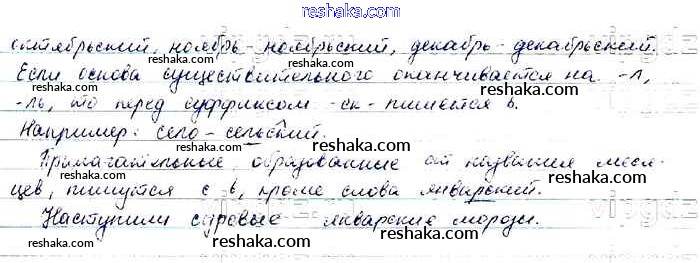 reshaka.com
сентябрьский, ноябрь - ноябрьский, декабрь - декабрьский.
Если основа существительного оканчивается на -л,
-ль, то перед суффиксом -ск- пишется ь.
Например: село - сельский.
Прилагательные, образованные от названия меся-
цев, пишутся с ь, кроме слова январский.
Наступили суровые январские морозы.